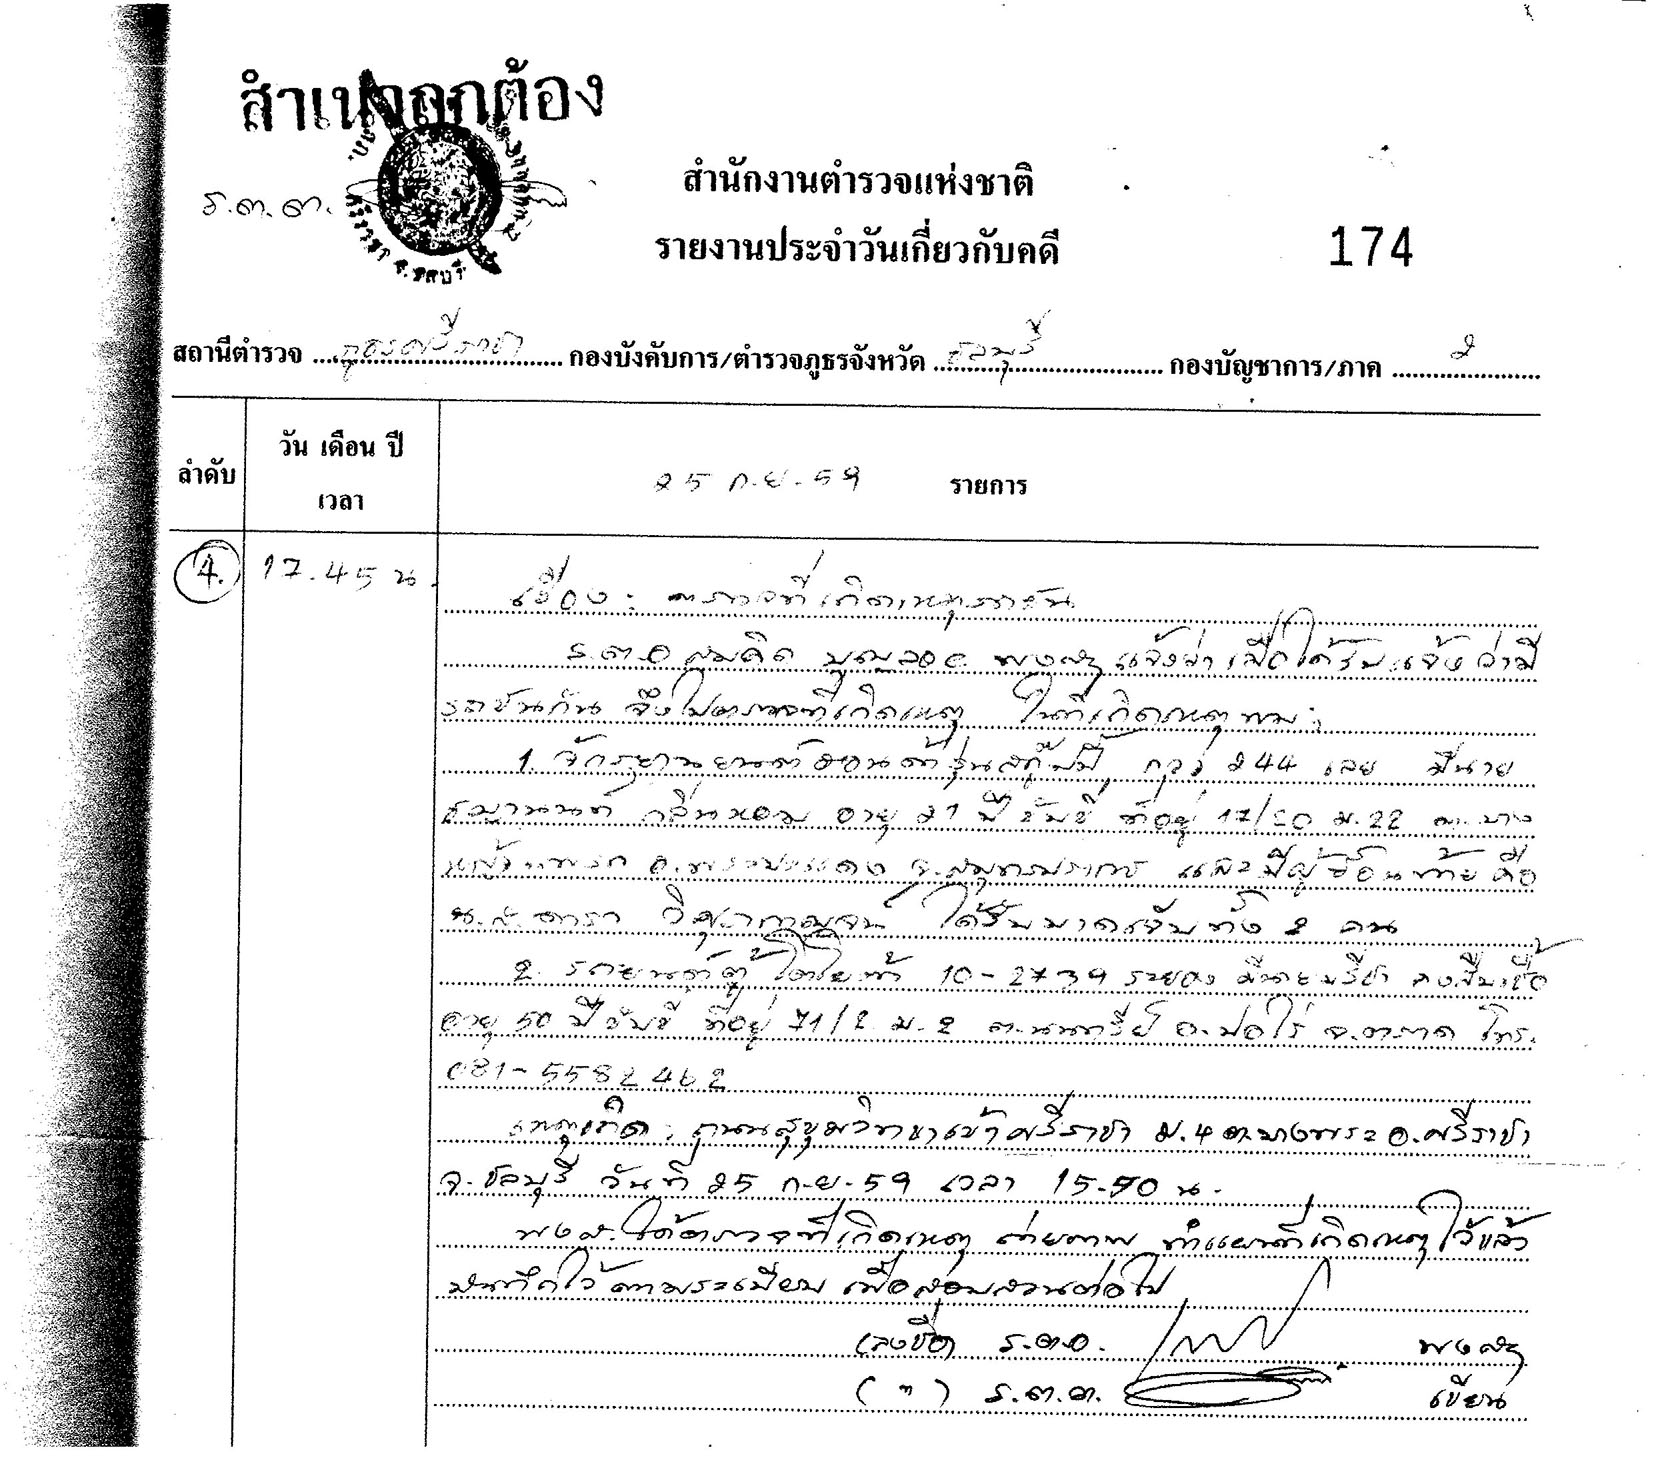 สำเนาถูกต้อง
ร.ต.ต.
ศรีราชา จ.ชลบุรี
สำนักงานตำรวจแห่งชาติ
รายงานประจำวันเกี่ยวกับคดี
174
สถานีตำรวจ ภูธรศรีราชา กองบังคับการ/ตำรวจภูธรจังหวัด ชลบุรี กองบัญชาการ/ภาค 2
ลำดับ
วัน เดือน ปี
เวลา
25 ก.ย. 59 รายการ
4. 17.45 น.
เรื่อง : ตรวจที่เกิดเหตุรถชน
ร.ต.อ สมคิด บุญ พงส. แจ้งว่า เมื่อได้รับแจ้งว่ามี
รถชนกัน จึงไปตรวจที่เกิดเหตุ ในที่เกิดเหตุพบ
1. จักรยานยนต์ฮอนด้ารุ่นสกู๊ปปี้ 244 เลย มีนาย
กลิ่นหอม อายุ 21 ปี ขับขี่ ที่อยู่ 17/20 ม.22 ต.บาง
อ.พระประแดง จ.สมุทรปราการ และมีผู้ซ้อนท้ายคือ
น.ส.ดารา ได้รับบาดเจ็บทั้ง 2 คน
2. รถยนต์ตู้โตโยต้า 10-2739 ระยอง มีนายปรีชา
อายุ 50 ปี ขับขี่ ที่อยู่ 71/2 ม.2 ต.นนทรีย์ อ.บ่อไร่ จ.ตราด โทร.
081-5582462
เหตุเกิด : ถนนสุขุมวิทขาเข้าศรีราชา ม.4 ต.บางพระ อ.ศรีราชา
จ.ชลบุรี วันที่ 25 ก.ย. 59 เวลา 15.50 น.
พงส.ได้ตรวจที่เกิดเหตุ ถ่ายภาพ ทำแผนที่เกิดเหตุไว้แล้ว
บันทึกไว้ตามระเบียบ เพื่อสอบสวนต่อไป
(ลงชื่อ) ร.ต.อ. พงส.
( " ) ร.ต.ต. เขียน